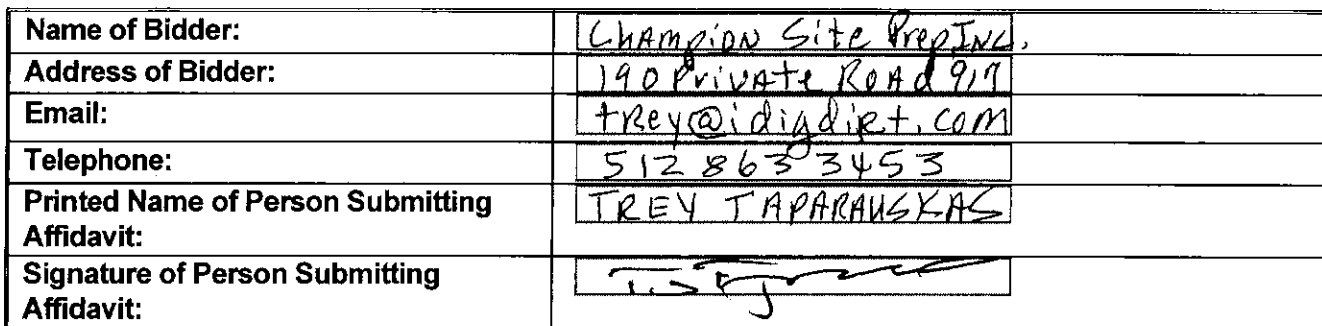 Name of Bidder: Champion Site Prep Inc.
Address of Bidder: 190 Private Road 917
Email: trey@idigdirt.com
Telephone: 512 863 3453
Printed Name of Person Submitting TREY TAPARAUSKAS
Affidavit:
Signature of Person Submitting
Affidavit: